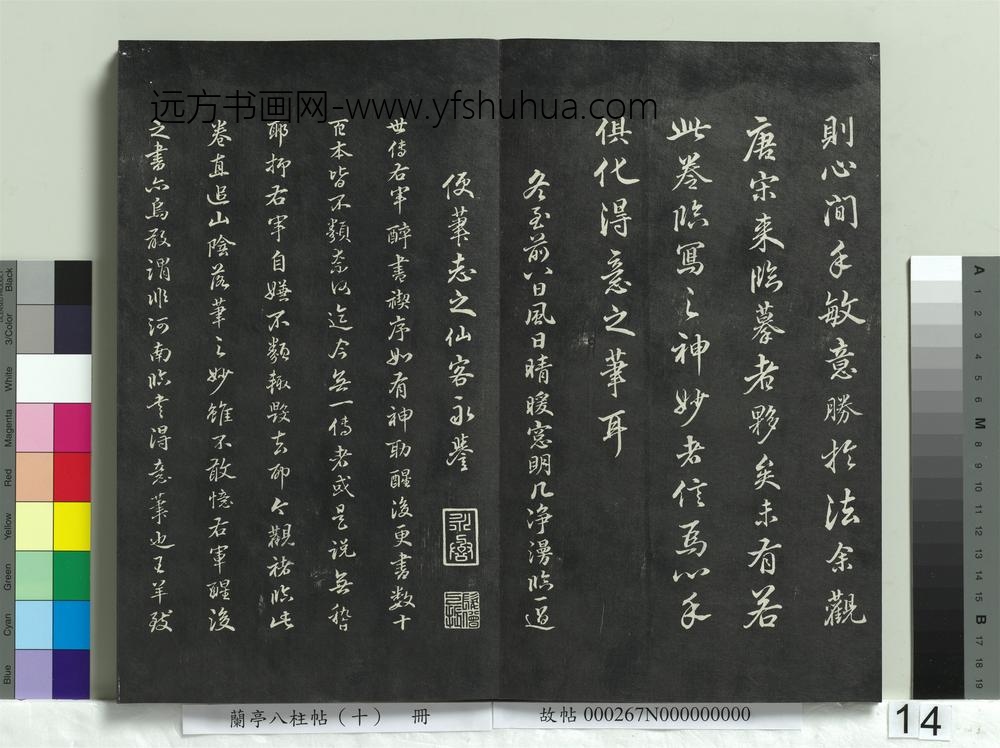 远方书画网-www.yfshuhua.com
則心閒手敏意勝於法余觀
唐宋來臨摹者夥矣未有若
此卷臨寫之神妙者信焉心手
俱化得意之筆耳
冬至前八日風日晴暖窓明几净漫臨一過
便筆志之仙客永譽
世傳右軍醉書禊序如有神助醒後更書數十
百本皆不類奈何迄今無一傳者或是說無稽
耶抑右軍自嫌不類輒毀去耶今觀褚臨此
卷直追山陰落筆之妙雖不敢憶右軍醒後
之書亦烏敢謂非河南臨書得意筆也王羊致
蘭亭八柱帖(十) 冊
故帖 000267N000000000
14
Black
3/Color
White
Magenta
Red
Yellow
Green
Cyan
Blue
A
1
2
3
4
5
6
M
8
9
10
11
12
13
14
15
B
17
18
19